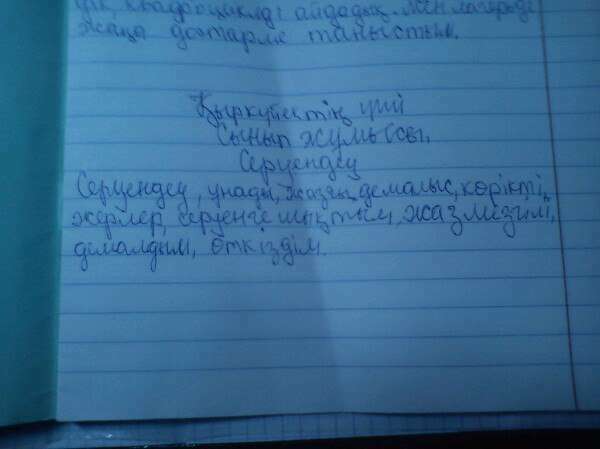 дік, квадроциклді айдадық. Мен лагерьде
жаңа достарме таныстым.
Қыркүйектің үші
Сынып жұмысы.
Серуендеу
Серуендеу, ұнады, жазғы демалыс, көрікті
жерлер, серуенге шықтым, жаз мезгілі,
демалдым, өткіздім.